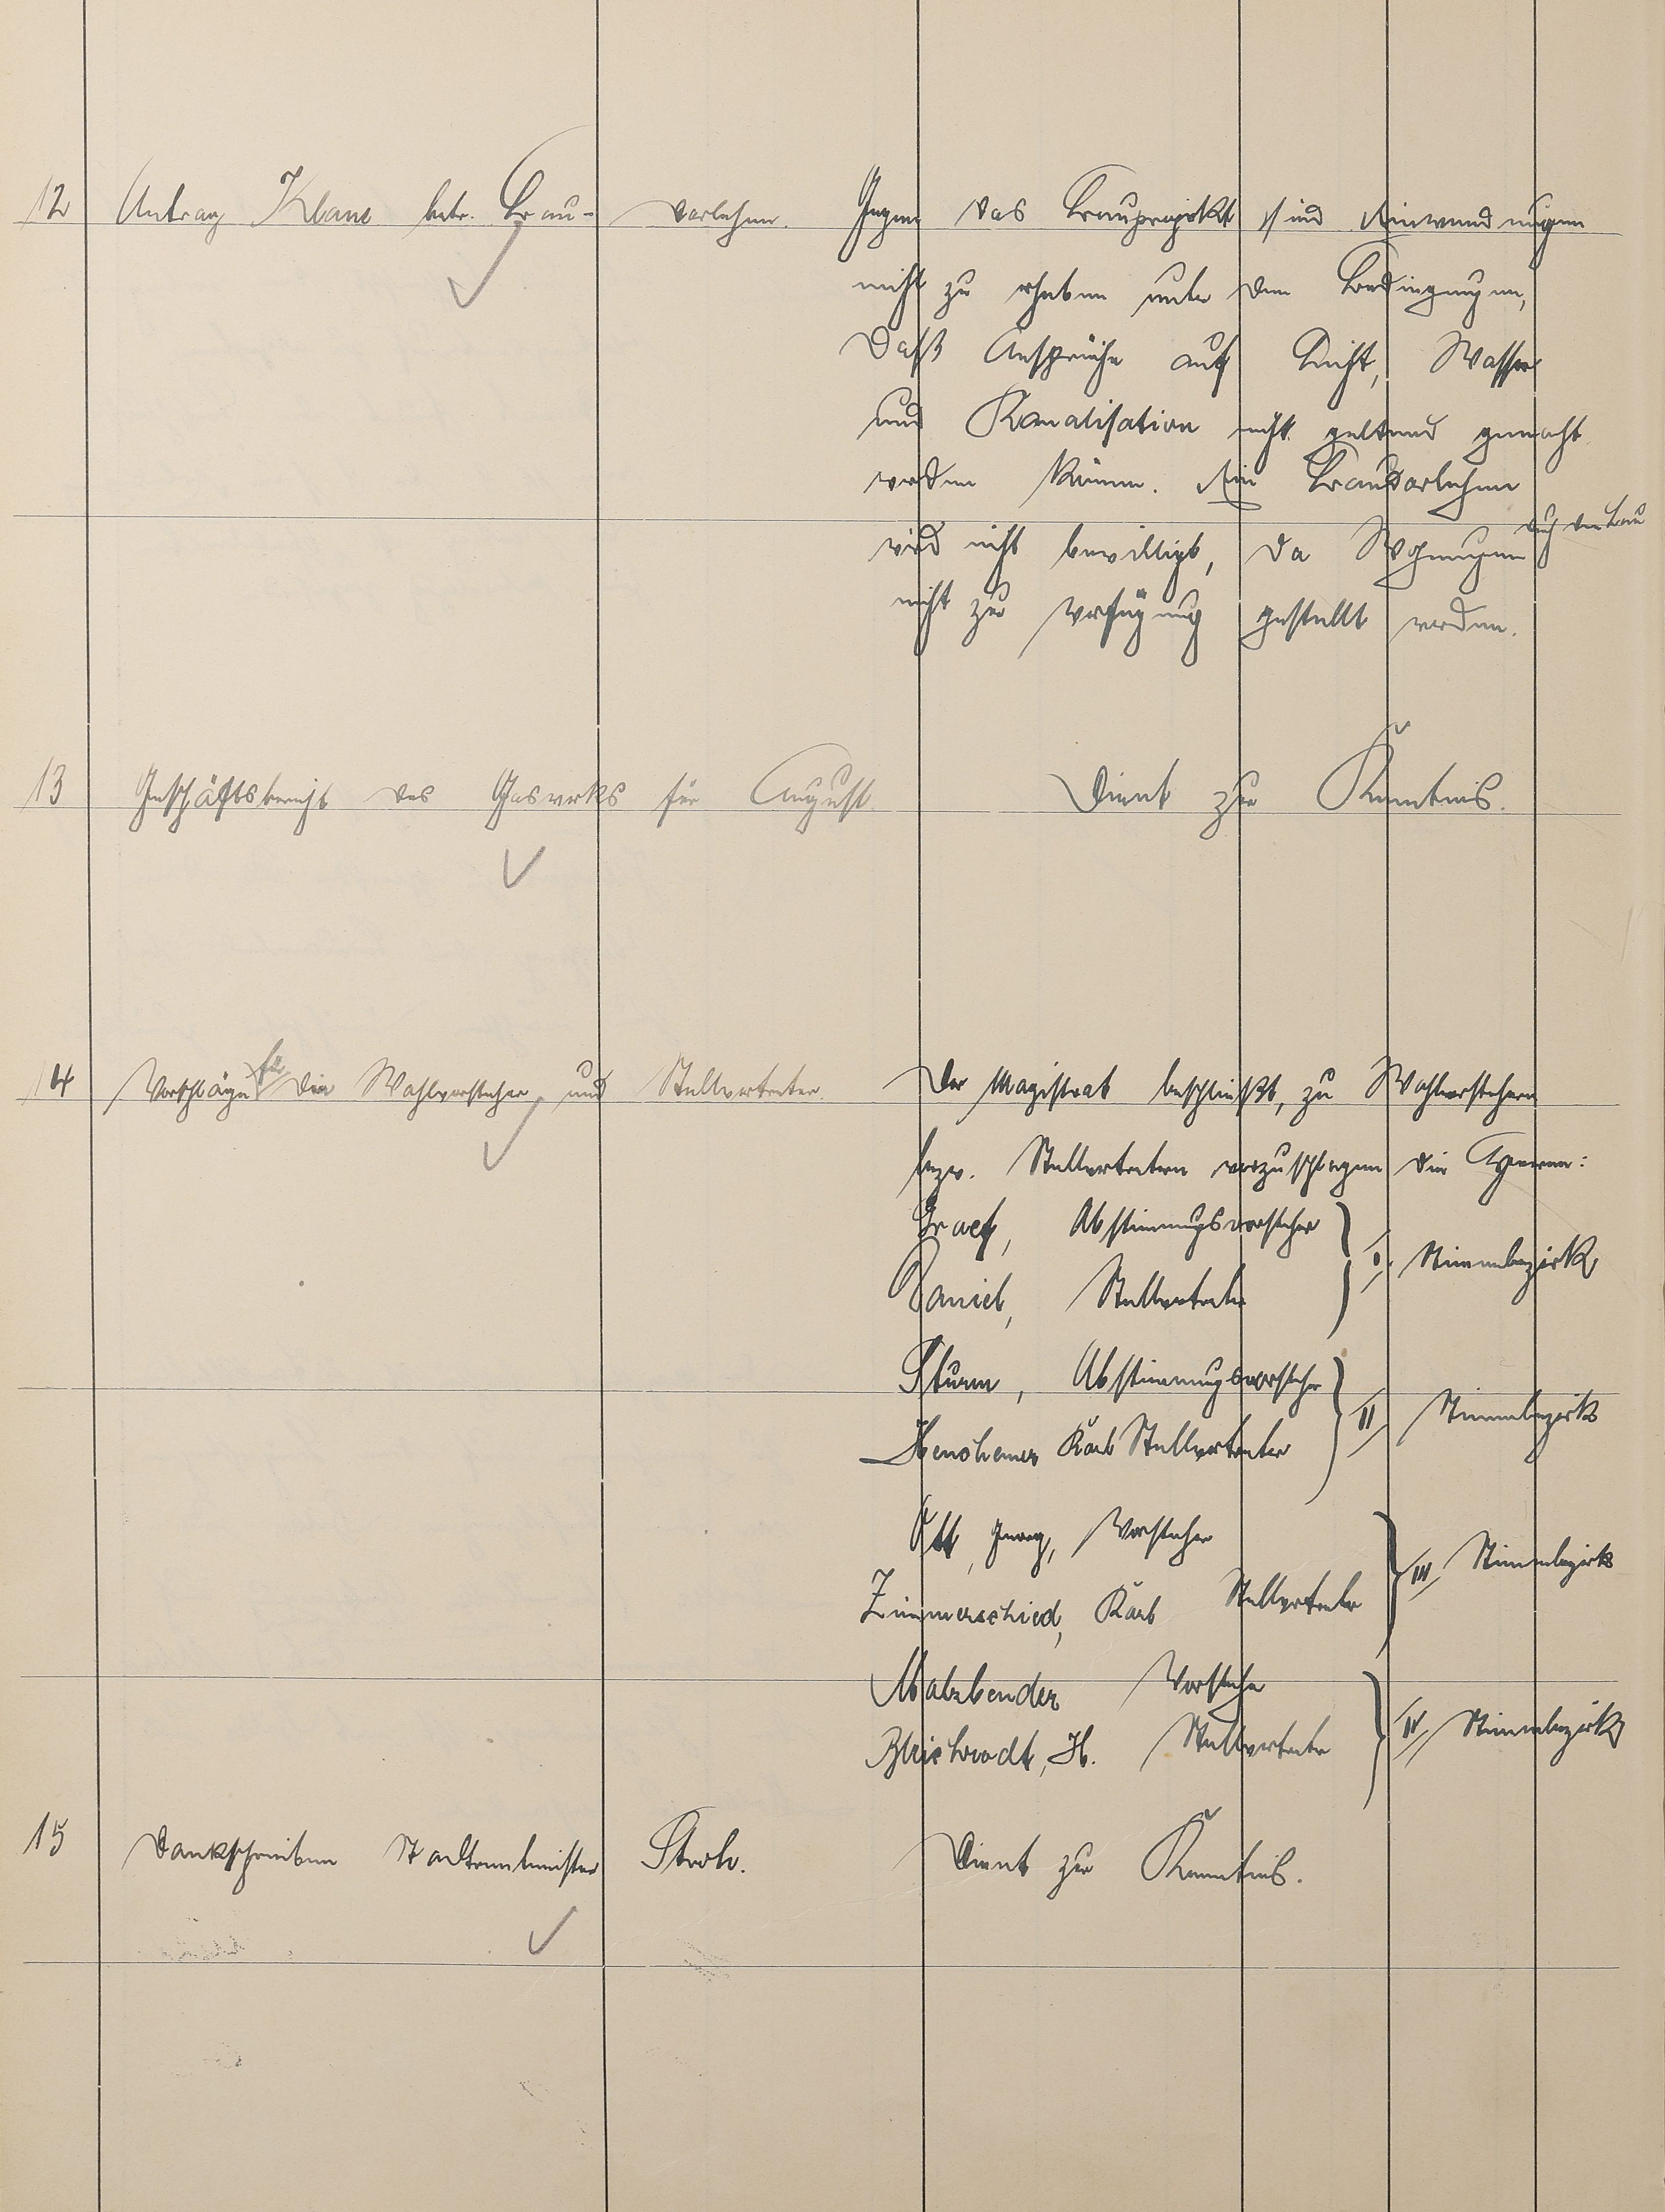 12 Antrag Klans betr. Bau- darlehen. Gegen das Bauprojekt sind Einwendungen
nicht zu erheben unter den Bedingungen,
daß Ansprüche auf Licht, Wasser
und Kanalisation nicht geltend gemacht
werden können. Ein Baudarlehen
wird nicht bewilligt, da Wohnungen durch den Bau
nicht zur Verfügung gestellt werden.
13 Geschäftsbericht des Gaswerks für August. Dient zur Kenntnis.
14 Vorschläge für die Wahlvorsteher und Stellvertreter. Der Magistrat beschließt, zu Wahlvorstehern
bezw. Stellvertretern vorzuschlagen die Herren:
Graef, Abstimmungsvorsteher
I. Stimmbezirk
Daniel, Stellvertreter
Sturm, Abstimmungsvorsteher
II Stimmbezirk
Karl Stellvertreter
Ott, Georg, Vorsteher
III Stimmbezirk
Zimmerschied, Karl Stellvertreter
Malzbender Vorsteher
IV Stimmbezirk
H. Stellvertreter
15 Dankschreiben Stadtrentmeister Stroh. Dient zur Kenntnis.